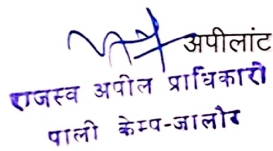 अपीलांट
राजस्व अपील प्राधिकारी
पाली केम्प-जालोर